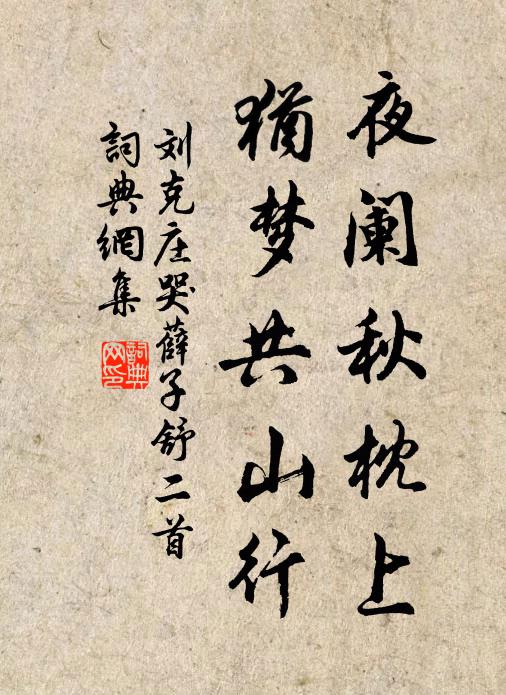 夜阑秋枕上
猶梦共山行
刘克庄哭薛子舒二首
詞典網集
詞典网印